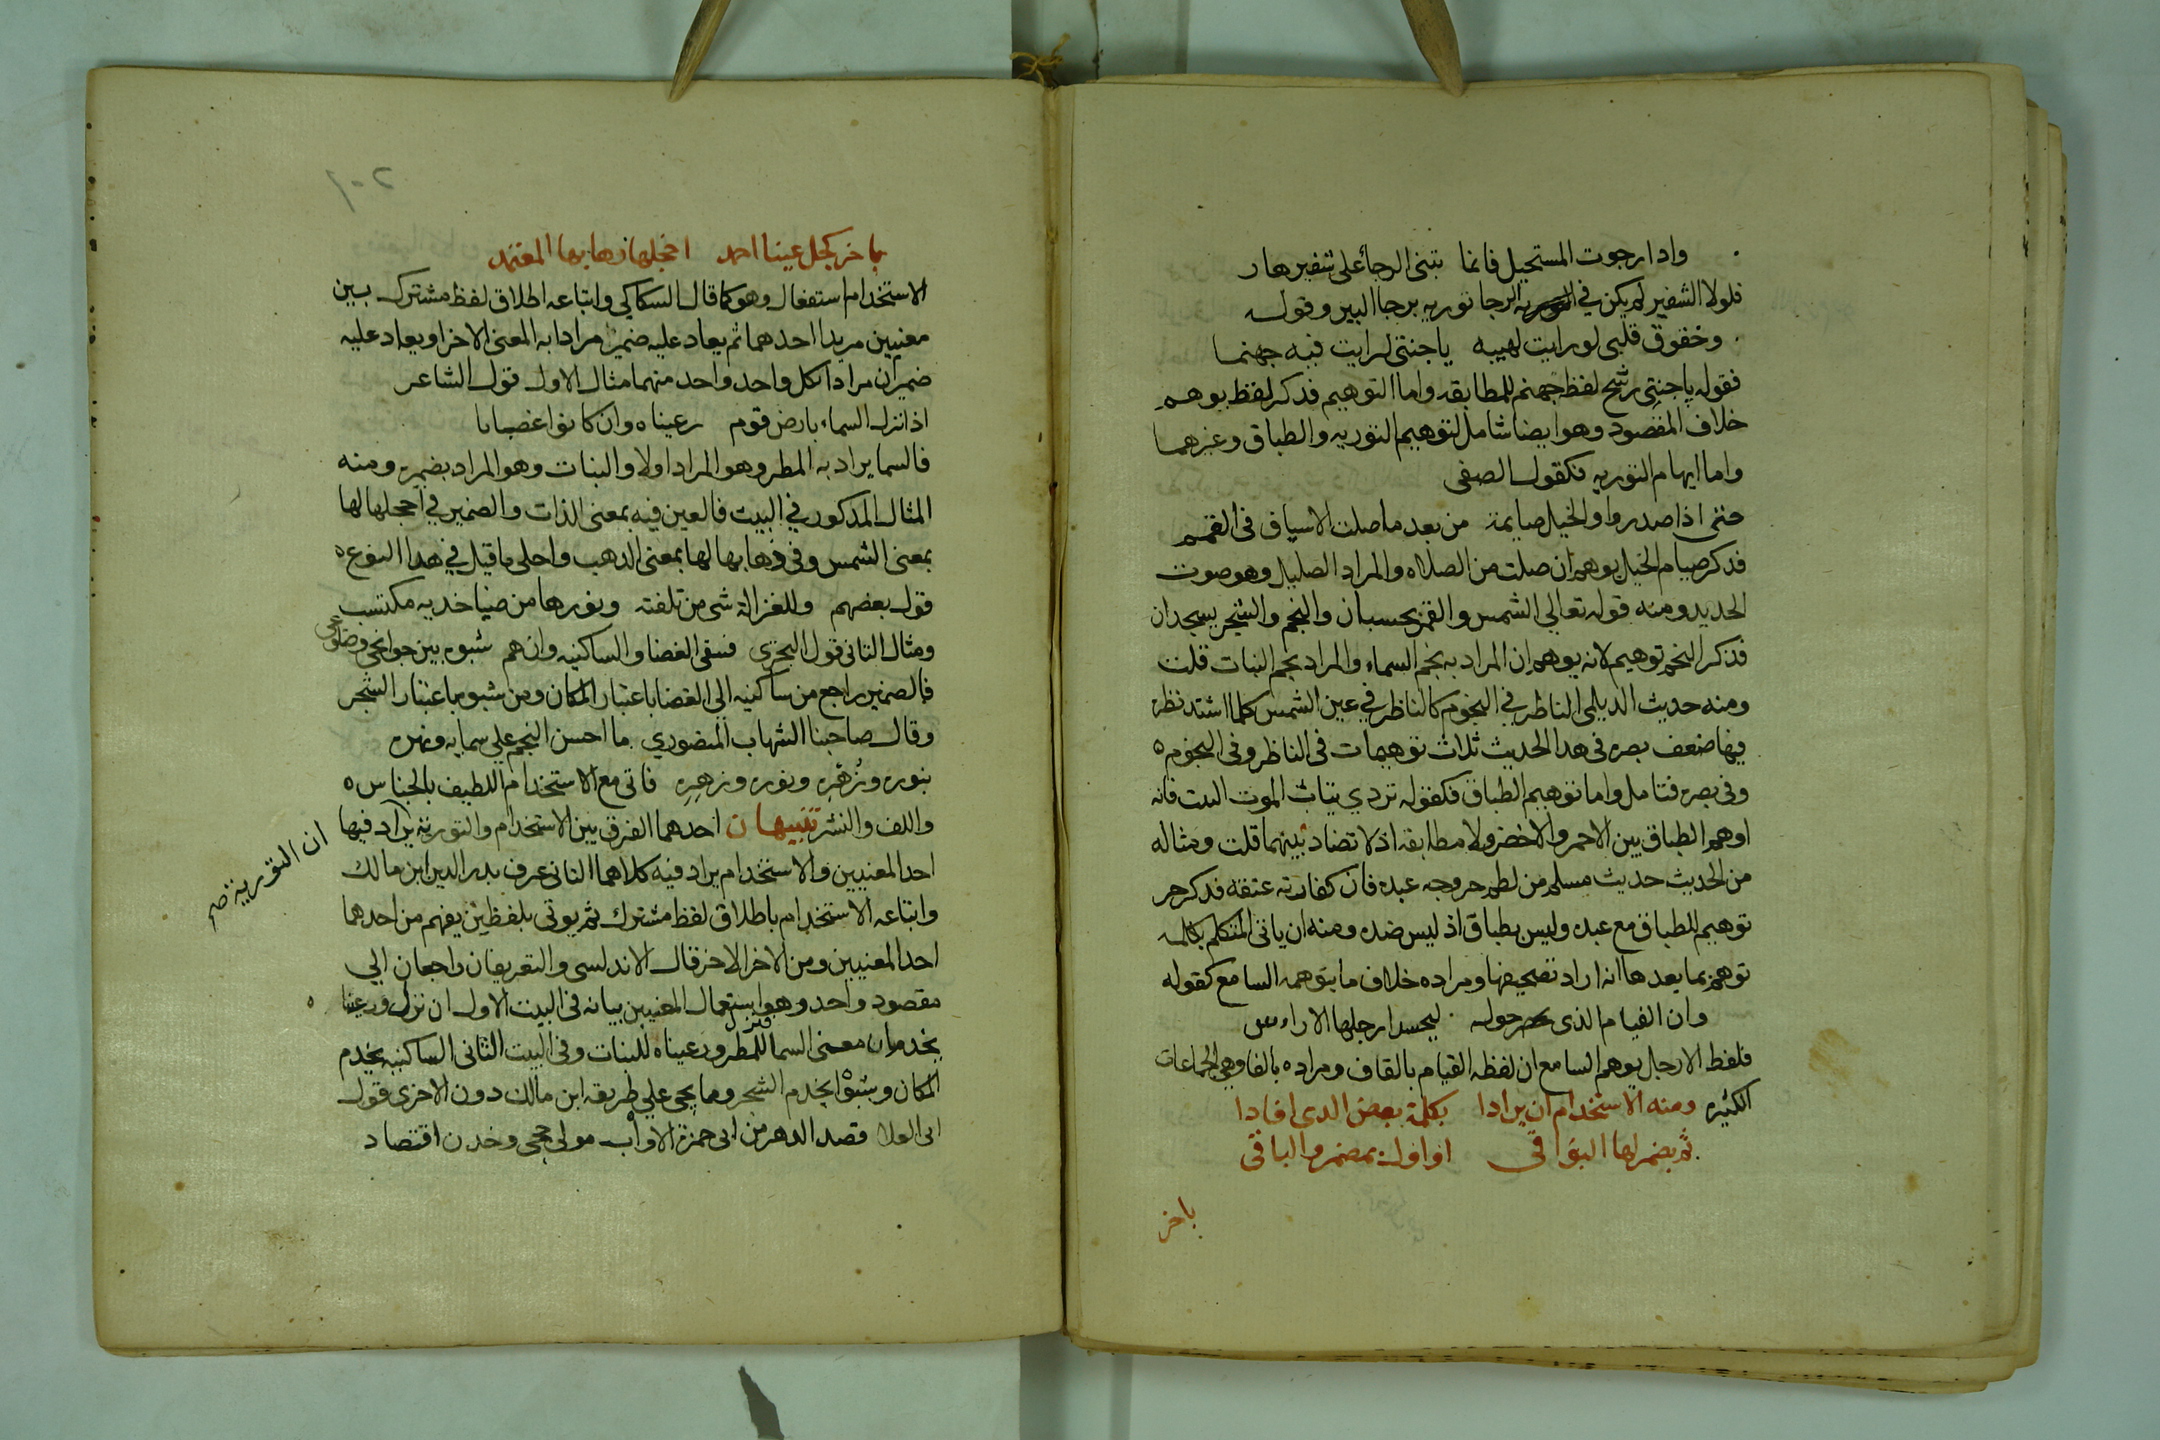 واذا رجوت المستحيل فانما تبنى الرجأ على شفير هار
فلولا الشفير لم يكن في الرجا تورية برجا البير وقوله
وخفوق قلبي لو رايت لهيبه يا جنتي لرايت فيه جهنما
فقوله يا جنتي رشح لفظ جهنم للمطابقه واما التوهيم فذكر لفظ يوهم
خلاف المقصود وهو ايضا شامل لتوهيم التوريه والطباق وغيرهما
واما ايهام التوريه فكقول الصفي
حتى اذا صدروا والخيل صايمة من بعد ما صلت الاسياف في القمم
فذكر صيام الخيل يوهم ان صلت من الصلاه والمراد الصليل وهو صوت
الحديد ومنه قوله تعالي الشمس والقمر بحسبان والنجم والشجر يسجدان
فذكر النجم توهيم لانه يوهم ان المراد به نجم السماء والمراد نجم النبات قلت
ومنه حديث الديلمي الناظر في النجوم كالناظر في عين الشمس كلما اشتد نظره
فيها ضعف بصره في هدا الحديث ثلاث توهيمات في الناظر وفي النجوم ه
وفي بصره فتامل واما توهيم الطباق فكقوله تردي ثياب الموت البيت فانه
اوهم الطباق بين الاحمر والاخضر ولا مطابقه اذ لا تضاد بينهما قلت ومثاله
من الحديث حديث مسلم من لطم حر وجه عبده فان كفارته عتقه فدكر حر
توهيم للطباق مع عبده وليس بطباق اذ ليس ضده ومنه ان ياتي المتكلم بكلمه
توهم بما بعدها انه اراد تصحيفها ومراده خلاف ما يتوهمه السامع كقوله
وان الفيام الذي حوله ليحسد ارجلها الاراوس
فلفظ الارجل يوهم السامع ان لفظه القيام بالقاف ومراده بالفا وهي الجماعات
الكثيره ومنه الاستخدام ان يرادا بكلمة بعض الدى افادا
ثم بضمر لها البواقي او اول بمضمر والباقي
باخر
٢٠١
باخر كجل عينا احمد اخجلها ذهابها المقتمد
الاستخدام استفعال وهو كما قال السكاكي واتباعه اطلاق لفظ مشترك بين
معنيين مريدا احدهما ثم يعاد عليه ضمير مرادا به المعنى الاخر او يعاد عليه
ضميران مرادا بكل واحد واحد منهما مثال الاول قول الشاعر
اذا نزل السماء بارض قوم رعيناه وان كانوا غضابا
فالسما يراد به المطر وهو المراد اولا والنبات وهو المراد بضميره ومنه
المثال المدكور في البيت فالعين فيه بمعنى الذات والضمير في اخجلها لها
بمعنى الشمس وفي ذهابها لها بمعنى الدهب واحلى ما قيل في هدا النوع ه
قول بعضهم وللغزالة شى من تلفته ونورها من ضيا خديه مكتسب
ومثال الثاني قول البحتري فسقى الغضا والساكنيه وان هم شبوه بين جوانحي وضلوعي
فالضمير راجع من ساكنيه الى الغضا باعتبار المكان ومن شبوه باعتبار الشجر
وقال صاحبنا الشهاب المنصوري ما احسن النجم علي سمايه ونهره
بنوره وزُهْرِه ونوره وزهره فاتى مع الاستخدام اللطيف بالجناس ه
واللف والنشر تنبيهان احدهما الفرق بين الاستخدام والتورية يراد فيها
ان التورية صح
احد المعنيين والاستخدام يراد فيه كلاهما الثاني عرف بدر الدين ابن مالك
واتباعه الاستخدام باطلاق لفظ مشترك ثم يوتى بلفظين يفهم من احدهما
احد المعنيين ومن الاخر الاخر قال الاندلسى والتعريفان راجعان الي
مقصود واحد وهو استعمال المعنيين بيانه في البيت الاول ان نزل ورعينا ه
يخدمان معنى السما فنزل للمطر ورعيناه للنبات وفي البيت الثاني الساكنيه يخدم
المكان وشبوْا يخدم الشجر ومما يجى علي طريقه ابن مالك دون الاخرى قول
ابى العلا قصد الدهر من ابى حمزة الاوأب مولى حجى وخدن اقتصاد